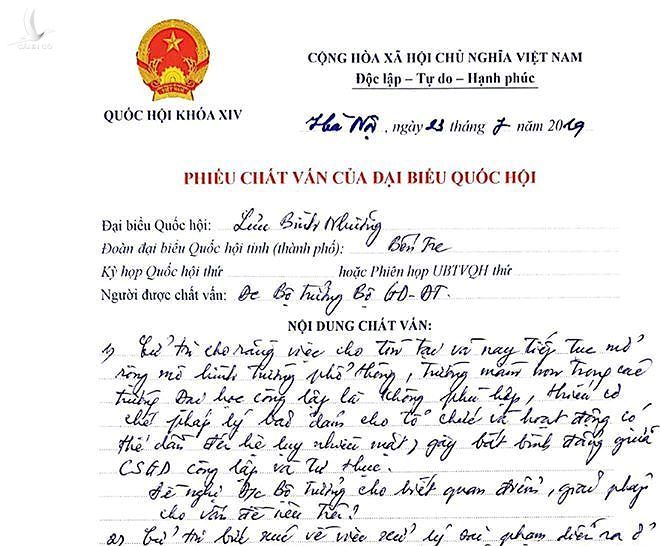 CỘNG HÒA XÃ HỘI CHỦ NGHĨA VIỆT NAM
Độc lập – Tự do – Hạnh phúc
QUỐC HỘI KHÓA XIV
Hà Nội, ngày 23 tháng 7 năm 2019
PHIẾU CHẤT VẤN CỦA ĐẠI BIỂU QUỐC HỘI
Đại biểu Quốc hội: Lưu Bình Nhưỡng
Đoàn đại biểu Quốc hội tỉnh (thành phố): Bến Tre
Kỳ họp Quốc hội thứ hoặc Phiên họp UBTVQH thứ
Người được chất vấn: Đc Bộ trưởng Bộ GD-ĐT.
NỘI DUNG CHẤT VẤN:
1) Cử tri cho rằng việc cho tồn tại và nay tiếp tục mở
rộng mô hình trường phổ thông, trường mầm non trong các
trường Đại học công lập là không phù hợp, thiếu cơ
chế pháp lý bảo đảm cho tổ chức và hoạt động có
thể dẫn đến hệ lụy nhiều mặt, gây bất bình đẳng giữa
CSGD công lập và tư thục.
Đề nghị Đc Bộ trưởng cho biết quan điểm, giải pháp
cho vấn đề nêu trên?
2) Cử tri bức xúc về việc xử lý sai phạm diễn ra ở